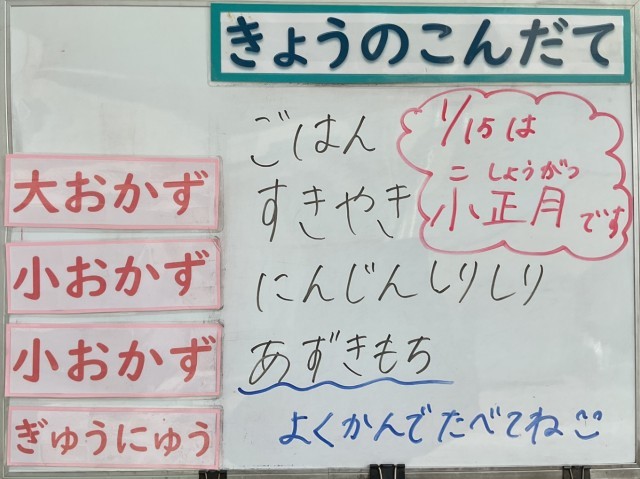 きょうのこんだて
ごはん
1/15は
こ しょうがつ
小正月です
大おかず すきやき
小おかず にんじんしりしり
小おかず あずきもち
ぎゅうにゅう よくかんでたべてね